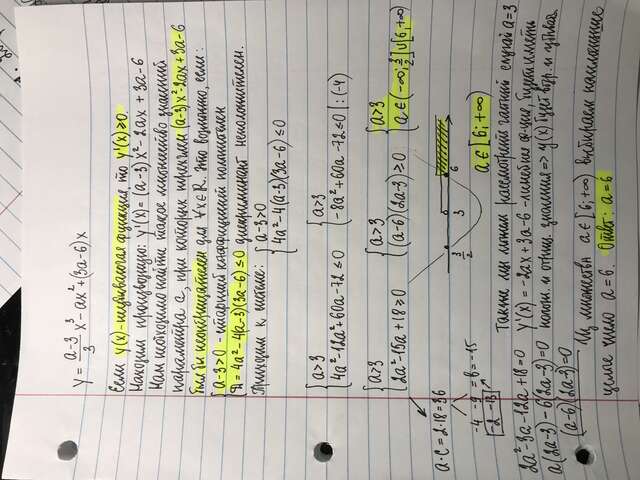 y = \frac{a-3}{3}x³ - ax² + (3a-6)x
Если y(x) - неубывающая функция, то y'(x) ≥ 0.
Находим производную: y'(x) = (a-3)x² - 2ax + 3a - 6
Нам необходимо найти такое множество значений
параметра a, при которых трёхчлен (a-3)x² - 2ax + 3a - 6
был бы неотрицателен для ∀x∈R. Это возможно, если:
{ a-3>0 - старший коэффициент положителен
{ D = 4a² - 4(a-3)(3a-6) ≤ 0 дискриминант неположителен.
Приходим к системе: { a-3>0
{ 4a² - 4(a-3)(3a-6) ≤ 0
{ a>3 { a>3
{ 4a² - 12a² + 60a - 72 ≤ 0 { -8a² + 60a - 72 ≤ 0 | :(-4)
{ a>3 { a>3 { a>3
{ 2a² - 15a + 18 ≥ 0 { (a-6)(2a-3) ≥ 0 { a ∈ (-∞; \frac{3}{2}] ∪ [6; +∞)
a·c = 2·18 = 36
-4 -9 = b = -15
-2 -18
\frac{3}{2} 3 6
a ∈ [6; +∞)
2a² - 3a - 12a + 18 = 0
a(2a-3) - 6(2a-3) = 0
(a-6)(2a-3) = 0
Также мы хотим рассмотреть частный случай a = 3
y'(x) = -2ax + 3a - 6 - линейная функция, будет иметь
полож. и отриц. значения => y(x) будет возр. и убывать.
Из множества a ∈ [6; +∞) выбираем наименьшее
целое число a = 6. Ответ: a = 6